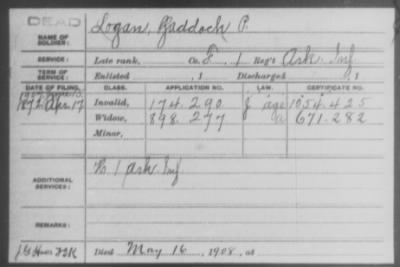 DEAD
NAME OF SOLDIER: Logan, Paddock P.
SERVICE: Late rank, Co. F, 1 Reg't Ark. Inf.
TERM OF SERVICE: Enlisted , 1 Discharged , 1
DATE OF FILING. CLASS. APPLICATION NO. LAW. CERTIFICATE NO.
Invalid, 174.290 1054.425
1872 Apr. 17 Widow, 898.277 671.282
Minor,
ADDITIONAL SERVICES: K 1 Ark. Inf
REMARKS:
Died May 16, 1908, at